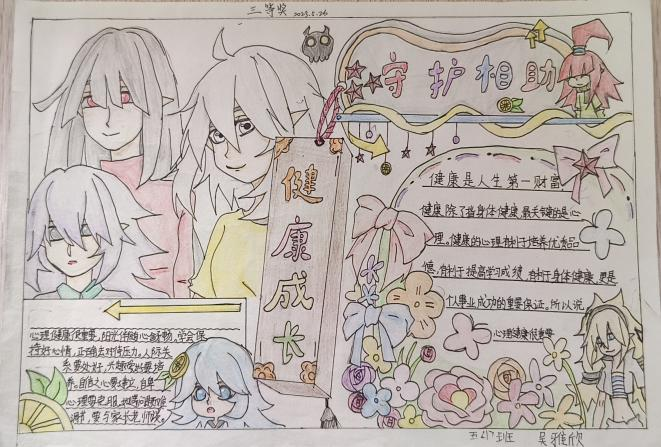 三等奖 2023.5.26
守护相助
健康成长
健康是人生第一财富
健康除了指身体健康,最关键的是心
理。健康的心理有利于培养优秀品
德,有利于提高学习成绩,有利于身体健康,更是
个人事业成功的重要保证。所以说
心理健康很重要
心理健康很重要,阳光伴随心舒畅,学会保
持好心情,正确去对待压力。人际关
系要处好,
养,自信心要建立,自卑
心理要克服,
调节,要与家长老师谈。
五 班 吴雅欣